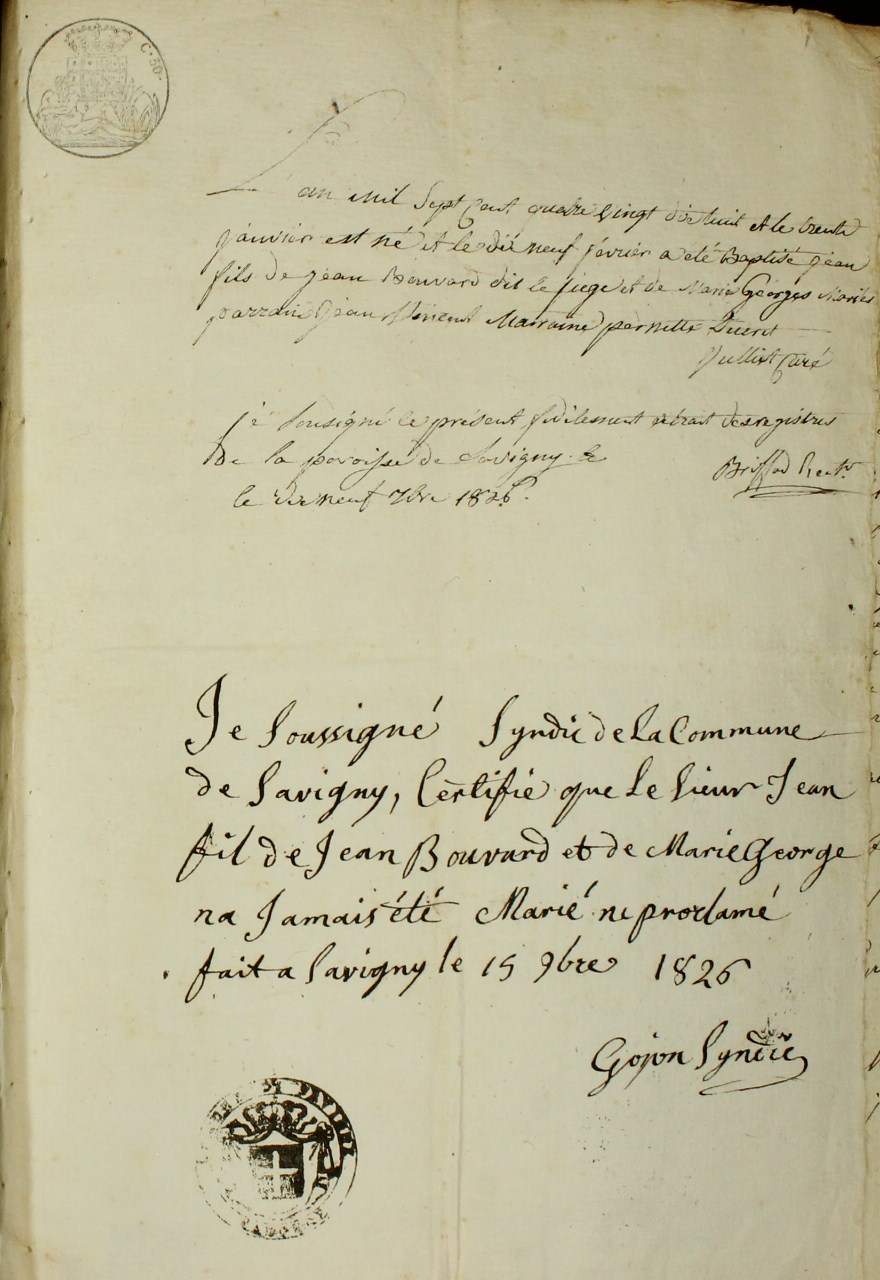 C. 50.
L'an mil Sept Cent quatre vingt dix huit et le trente
janvier est né et le dix neuf février a eté Baptisé jean
fils de jean Bouvard dit le siege et de Marie Georges Mariés
parrain jean vincent Marraine pernette
Julliet Curé
je sousigné le présent fidelement extrait des registres
De la paroisse de Savigny. Le
le dix neuf 7bre 1826.
Je Soussigné Syndic de La Commune
de Savigny, Certifie que Le Sieur Jean
fil de Jean Bouvard et de Marie George
na Jamais été Marié ni proclamé
fait a Savigny le 15 9bre 1826
Gojon Syndic